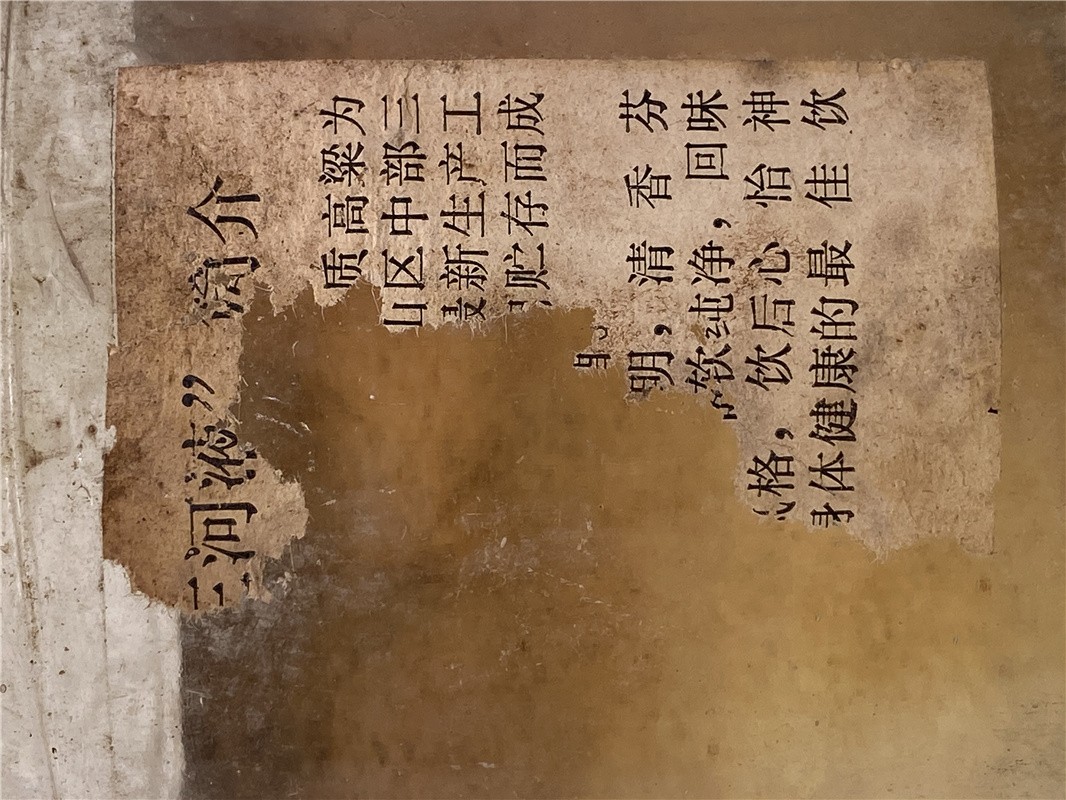 三河液”简介
质高粱为
山区中部三
最新生产工
贮存而成
明，清香芬
软纯净，回味
格，饮后心怡神
身体健康的最佳饮